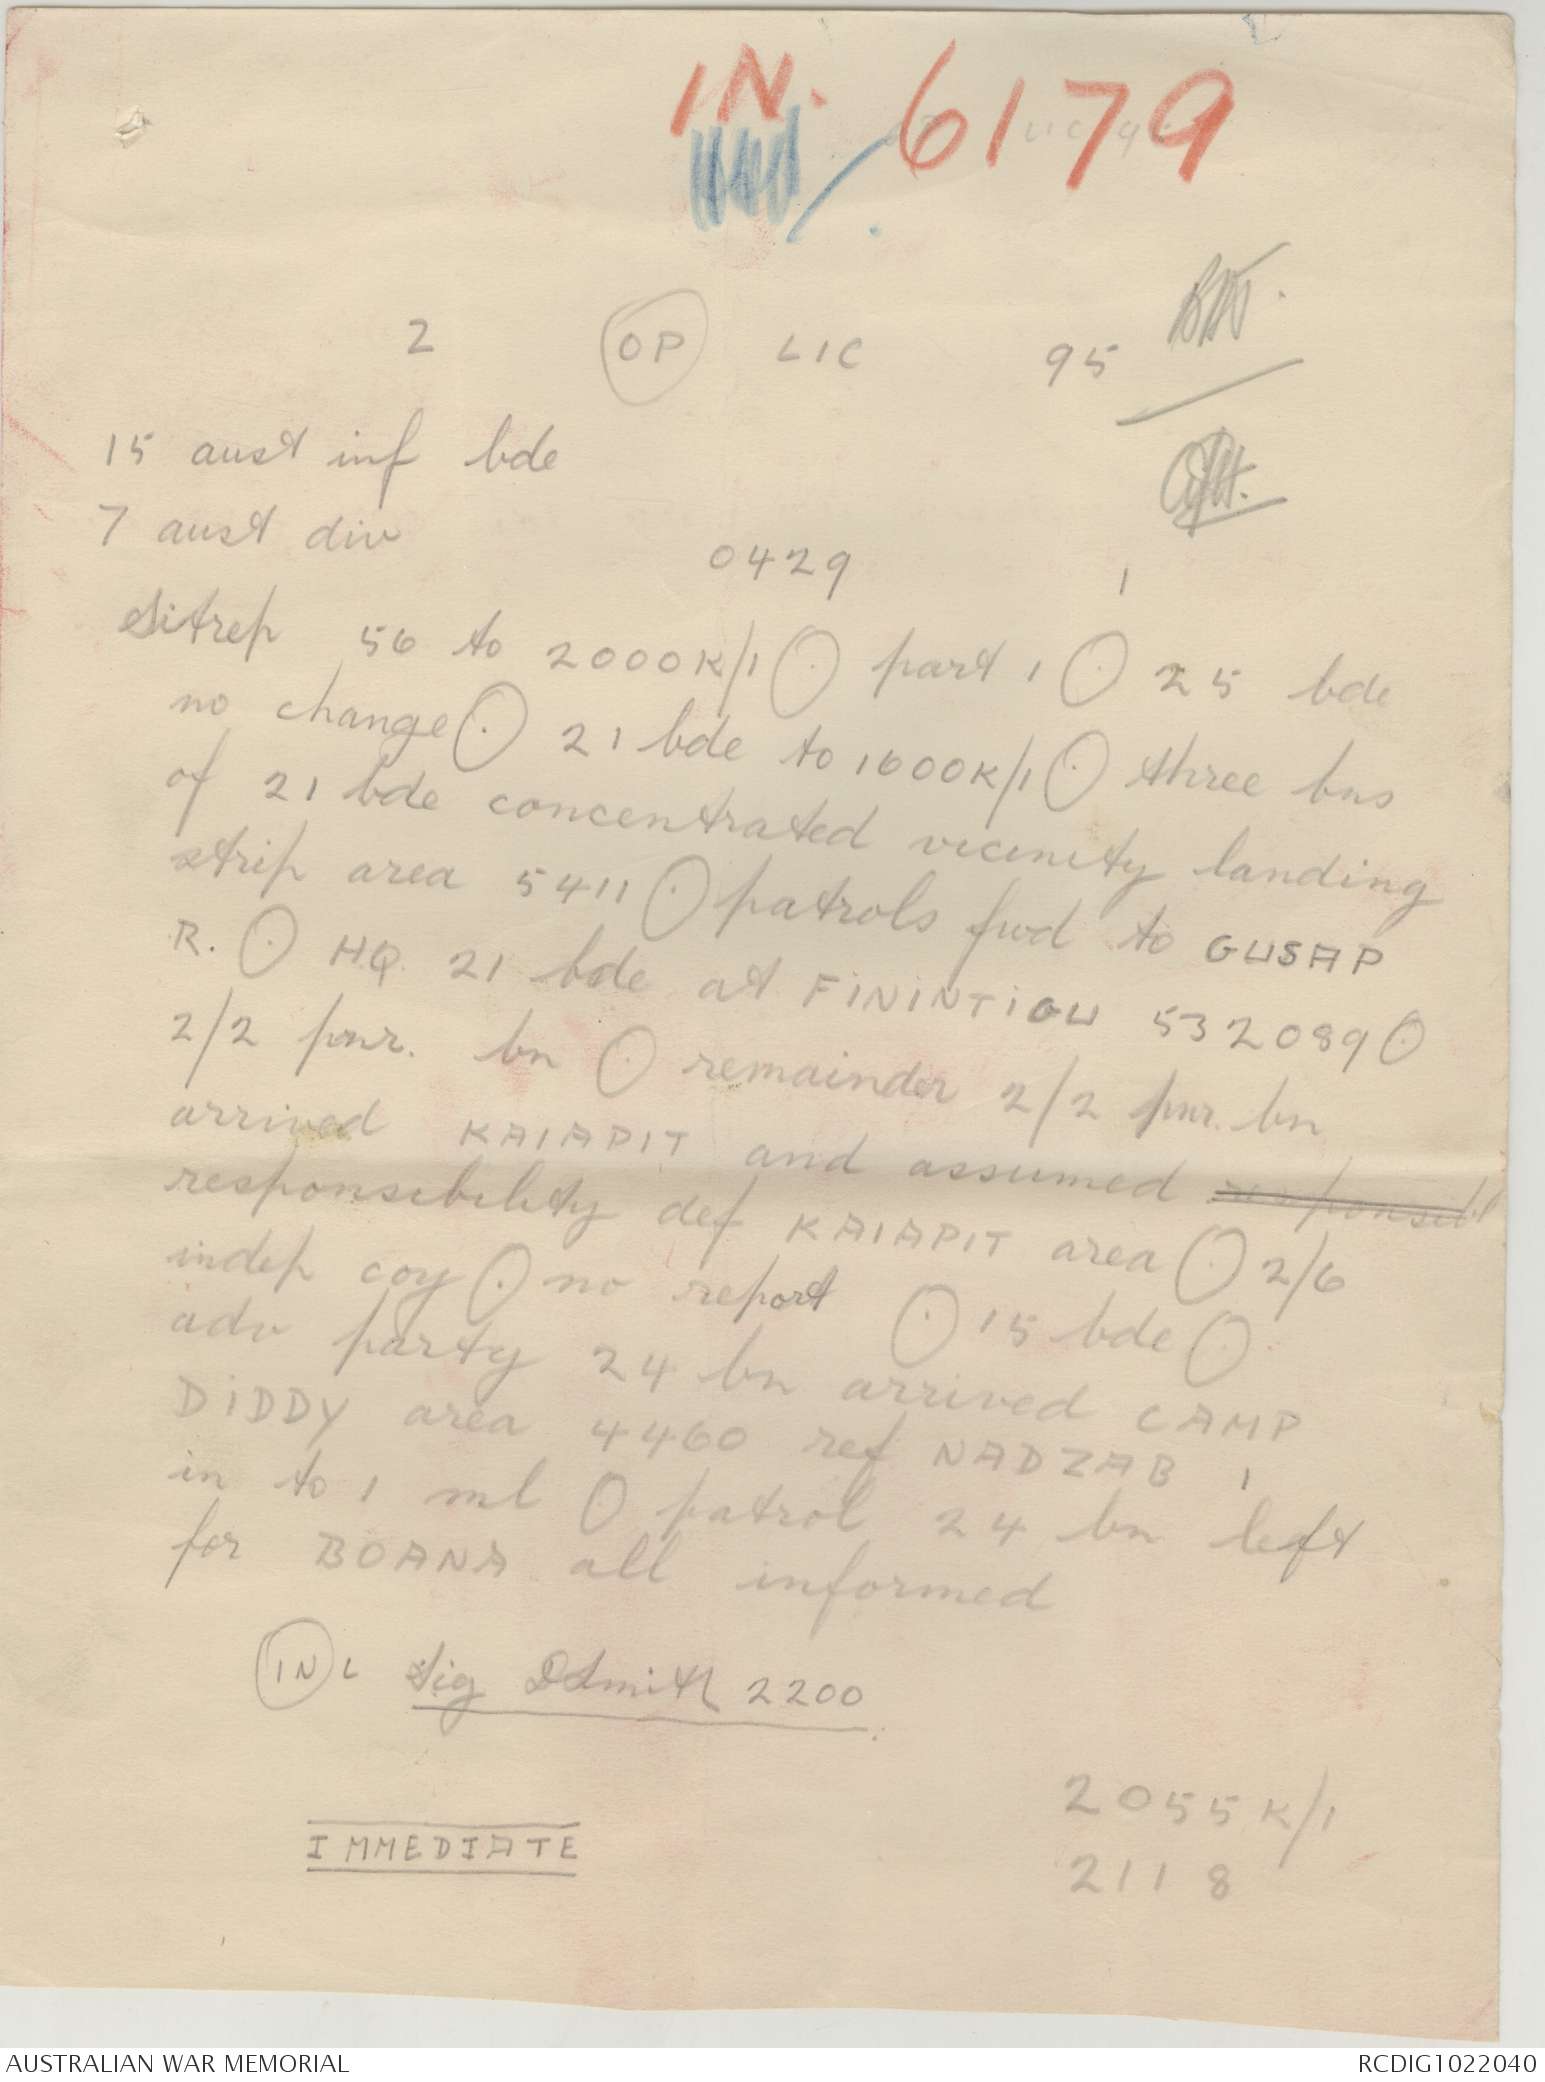 IN. 6179
2 OP LIC 95
15 aust inf bde
7 aust div
0429 1
Sitrep 56 to 2000K/1 ⊙ part 1 ⊙ 25 bde
no change ⊙ 21 bde to 1600K/1 ⊙ three bns
of 21 bde concentrated vicinity landing
strip area 5411 ⊙ patrols fwd to GUSAP
R. ⊙ HQ 21 bde at FININTIGU 532089 ⊙
2/2 pnr. bn ⊙ remainder 2/2 pnr. bn
arrived KAIAPIT and assumed responsibl
responsibility def KAIAPIT area ⊙ 2/6
indep coy ⊙ no report ⊙ 15 bde ⊙
adv party 24 bn arrived CAMP
DIDDY area 4460 ref NADZAB 1
in to 1 ml ⊙ patrol 24 bn left
for BOANA all informed
IN L Sig DSmith 2200
IMMEDIATE
2055K/1
2118
AUSTRALIAN WAR MEMORIAL RCDIG1022040